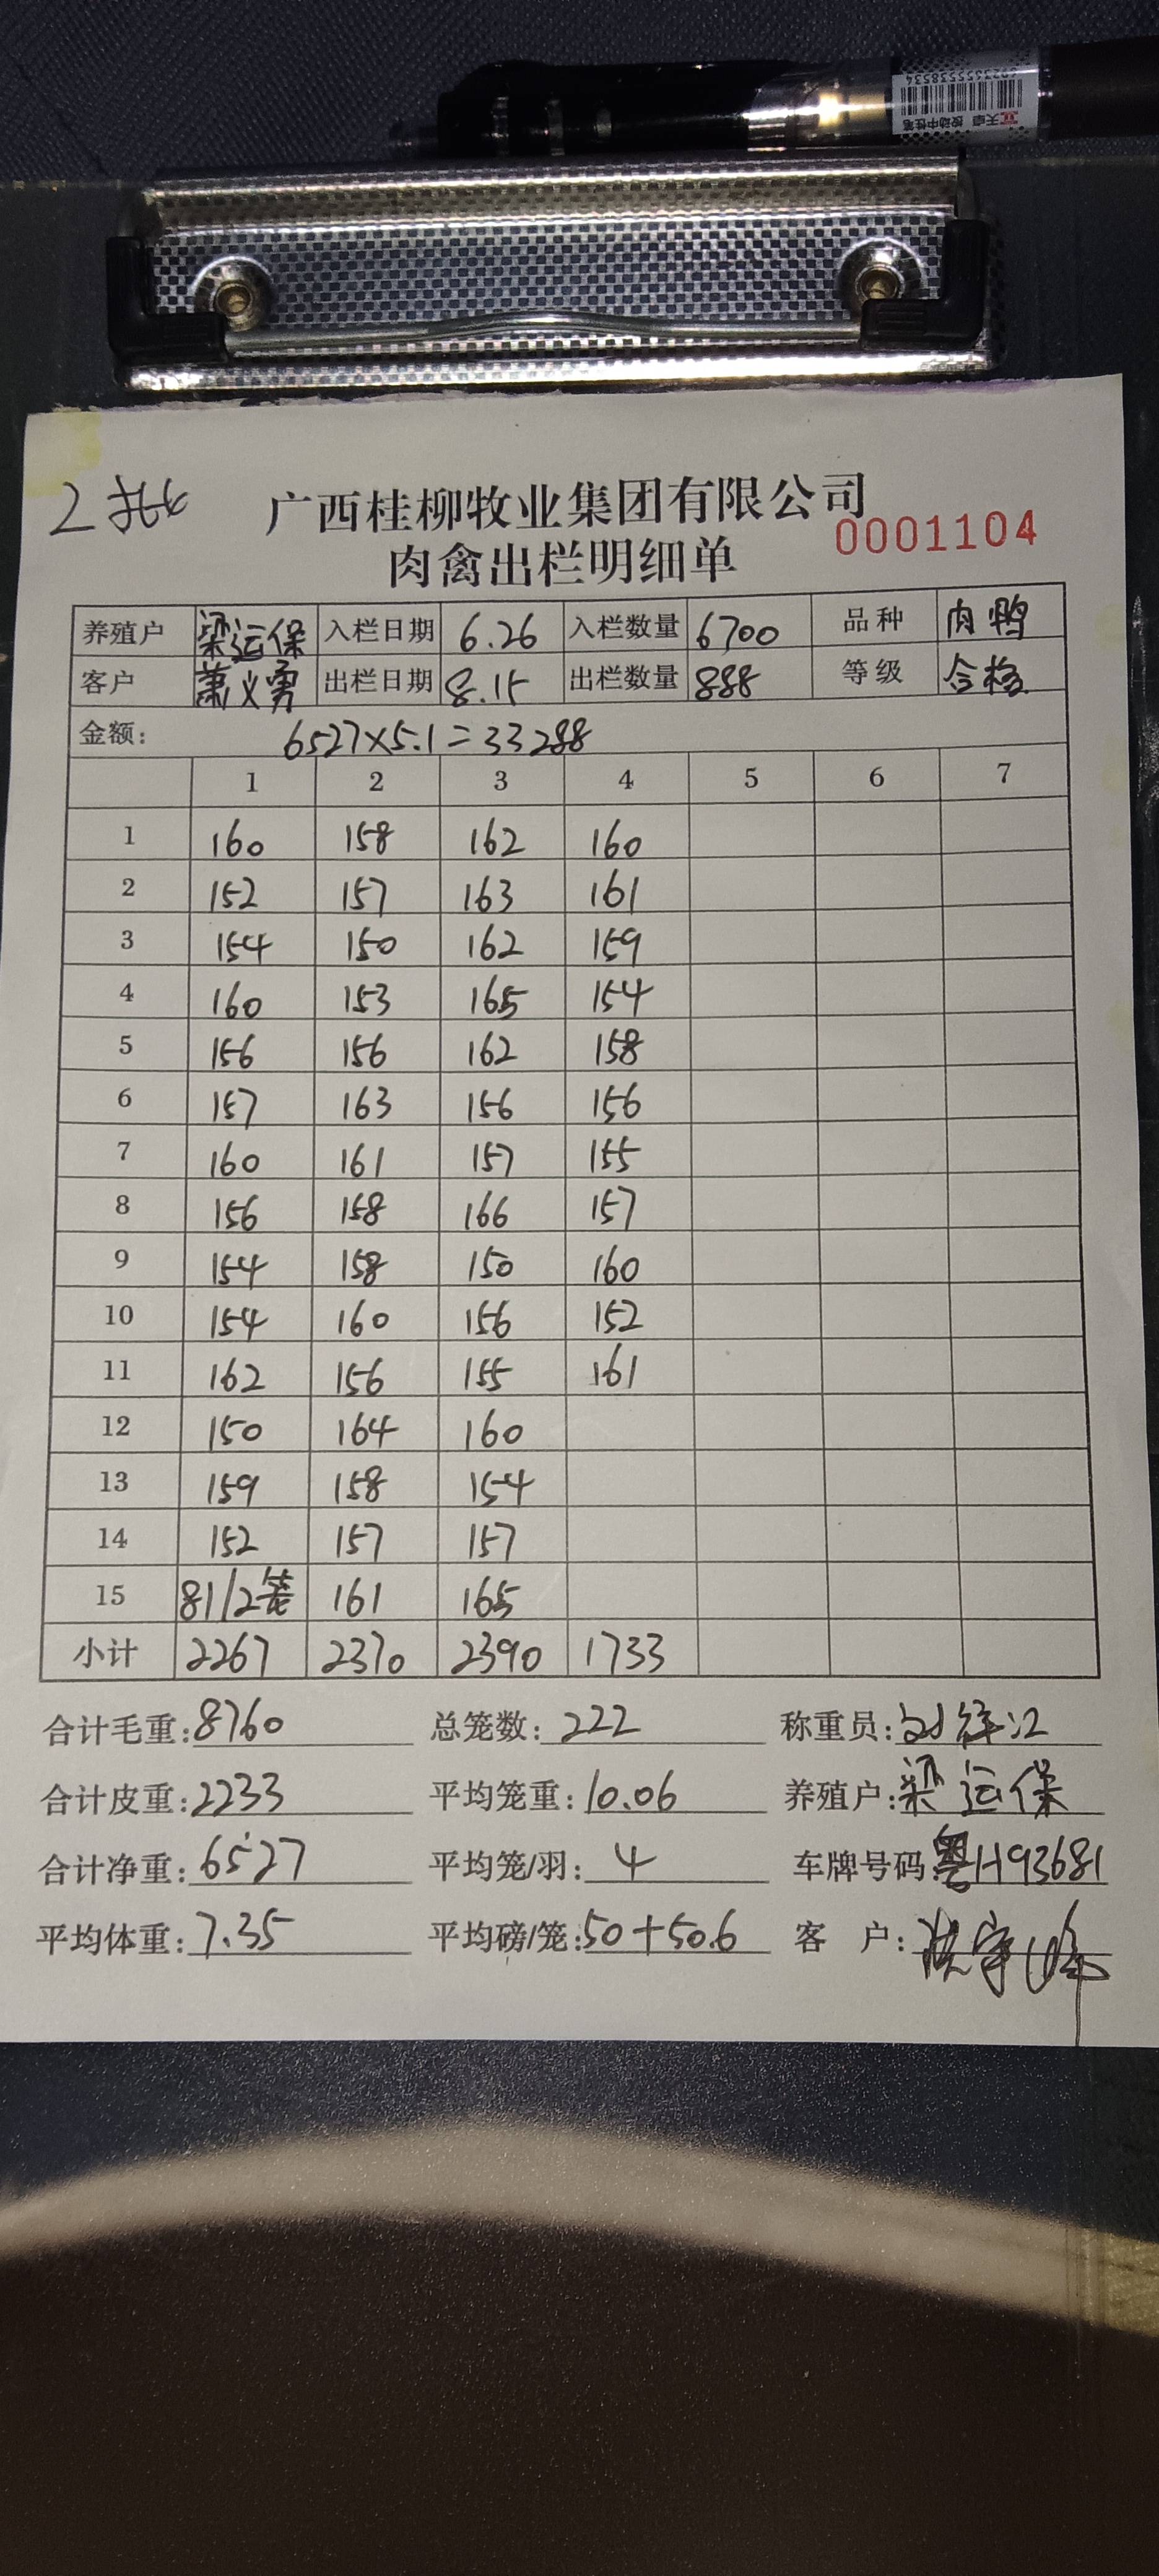 天卓 按动中性笔
2批
广西桂柳牧业集团有限公司
0001104
肉禽出栏明细单
养殖户 梁运保 入栏日期 6.26 入栏数量 6700 品种 肉鸭
客户 萧义勇 出栏日期 8.15 出栏数量 888 等级 合格
金额: 6527×5.1=33288
1 2 3 4 5 6 7
1 160 158 162 160
2 152 157 163 161
3 154 150 162 159
4 160 153 165 154
5 156 156 162 158
6 157 163 156 156
7 160 161 157 155
8 156 158 166 157
9 154 158 150 160
10 154 160 156 152
11 162 156 155 161
12 150 164 160
13 159 158 154
14 152 157 157
15 81/2笼 161 165
小计 2267 2370 2390 1733
合计毛重:8760 总笼数:222 称重员:
合计皮重:2233 平均笼重:10.06 养殖户:梁运保
合计净重:6527 平均笼/羽:4 车牌号码:粤H93681
平均体重:7.35 平均磅/笼:50+50.6 客户: